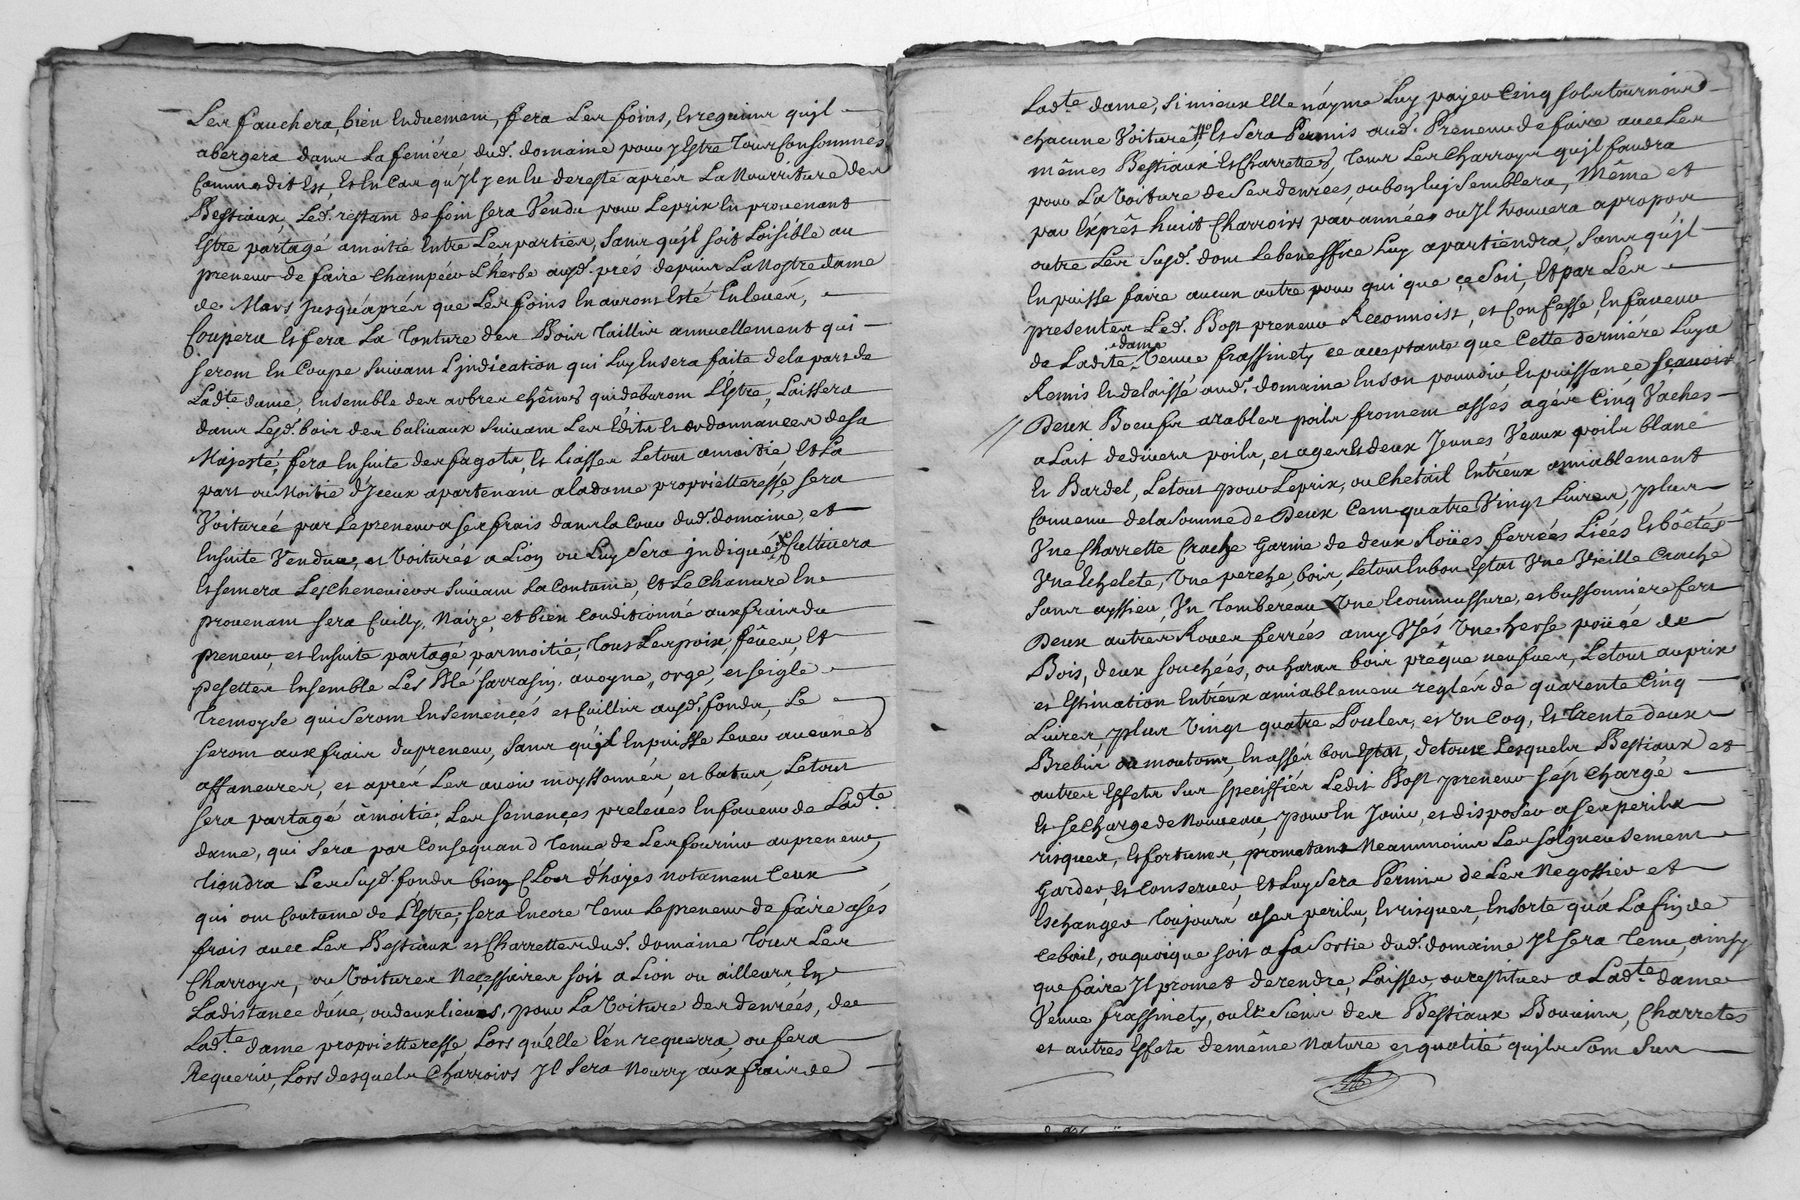 Les fauchera, bien En duement, fera Les foins, Et regains quil
abergera dans La feniére dud. domaine pour y Estre Tous Consommés
Comme dit Est Et En Cas qu'Il y en Eu de reste aprés La Nourriture des
Bestiaux, Led. restant de foin sera Vendu pour Le prix En provenant
Estre partagé amoitié Entre Les parties, Sans qu'jl soit Loisible au
preneur de faire champéer L'herbe ausd. prés depuis La Nostre dame
de Mars Jusqu'áprés que Les foins En auront Esté Enlevés,
Coupera Et fera La Tonture des Bois Taillis annuellement qui
seront En Coupe Suivant L'jndication qui Luy En sera faite de la part de
Lad.te dame, Ensemble des arbres chênes qui deburont L'Estre, Laissera
dans Lesd. bois des balivaux Suivant Les Edits Et ordonnances de sa
Majesté, féra Ensuite des fagots, Et Liasses Le tout amoitié Et La
part ou Moitié d'Jceux apartenant a la dame proprietteresse, sera
Voituréé par Le preneur a ses frais dans la Cour dud. domaine, et
Ensuite Vendue, et Voiturés a Lion ou Luy Sera jndiqué, Cultivera
Et semera Les Chenevieres Suivant La Coutume, Et Le Chanvre En
provenant sera Cuilly, Naizé, et bien Conditionné aux frais du
preneur, et Ensuite partagé par moitié, Tous Les poix, féves, Et
pesettes Ensemble Les Blé sarrasin, avoyne, orge, et seigle
Tremoyse qui Seront Ensemençés et Cuillis ausd. fonds, Le
seront aux frais du preneur, Sans qu'jl En puisse Lever aucunes
affaneures, et aprés Les avoir moyssonnés, et batus, Le tout
sera partagé âmoitié, Les semençes prelevés En faveur de Lad.te
dame, qui Sera par Consequand Tenue de Les fournir au preneur,
Tiendra Les susd. fonds bien Clos d'hayes notament Ceux
qui ont Coutume de L'Estre, sera Encore Tenu Le preneur de faire asés
frais avec Les Bestiaux et Charrettes dud. domaine Tous Les
Charroys, ou Voitures Neçessaires soit a Lion ou ailleurs, En
La distance d'une, ou deux lieues, pour La Voiture des denrées, de
Lad.te dame proprietteresse, Lors qu'élle L'én requerra, ou fera
Requerir, Lors desquels Charroirs Jl Sera Nourry aux frais de
Lad.te dame, Si mieux Elle n'áyme Luy payer Cinq sols tournois
chacune Voiture, Et Sera Permis aud. Preneur de faire avec Les
mêmes Bestiaux Et Charrettes, Tous Les Charroys qu'jl faudra
pour La Voiture de Ses denrées, ou bon Luy Semblera, Même et
par Exprês huit Charroirs par année ou Jl trouvera apropos
outre Les Susd. dont Le beneffice Luy apartiendra, Sans qu'jl
En puisse faire aucun autre pour qui que çe Soit, Et par Les
presentes Led. Bost preneur Reconnoist, et Confesse, En faveur
dame
de Ladite Veuve frassinety ce acceptante que Cette derniére Luy a
Remis Et delaissé aud. domaine En son pouvoir Et puissance sçavoir
// Deux Boeufs arables poils froment assés agés Cinq Vaches
a Lait de divers poils, et ages Et deux Jeunes Veaux poils blanc
Et Bardel, Le tout pour Le prix, ou Chetail Entr'eux amiablement
Convenu de la Somme de Deux Cent quatre Vingt Livres, plus
Vne Charrette Crache Garnie de deux Roües ferrées Liées Et bôetés
Vne Echelete, Une perche, bois, Le tout En bon Estat Vne Vieille Crache
Sans ayssieu, Vn Tombereau Une Ecoumassure, et bussonniere fers
Deux autres Roues ferrées amy Vsés Vne hesse poüée de
Bois, deux souchées, ou haras bois prêque neufves, Le tout au prix
et Estimation Entr'eux amiablement reglés de quarente Cinq
Livres plus Vingt quatre Poules, et Vn Coq, Et Trente deux
Brebis ou moutons, En assés bon Estat, de tous Lesquels Bestiaux et
autres Effets Sus speciffiés Ledit Bost preneur s'ést Chargé
Et se Charge de Nouveau, pour En Jouir, et disposer a ses perils
risques, Et fortunes, prometant Neanmoins Les soigneusement
Garder, et Conserver, Et Luy sera Permis de Les Negossier et
Eschanger Toujours ases perils, Et risques, En sorte qu'á La fin de
ce bail, ou quoique soit a Sa Sortie dud. domaine Jl sera Tenu, ainsy
que faire Jl promet de rendre, Laisser, ou restituer a Lad.te dame
Veuve frassinety, ou Es Siens des Bestiaux Bouvins, Charretes
et autres Effets de même Nature et qualité qu'jls Sont Sus